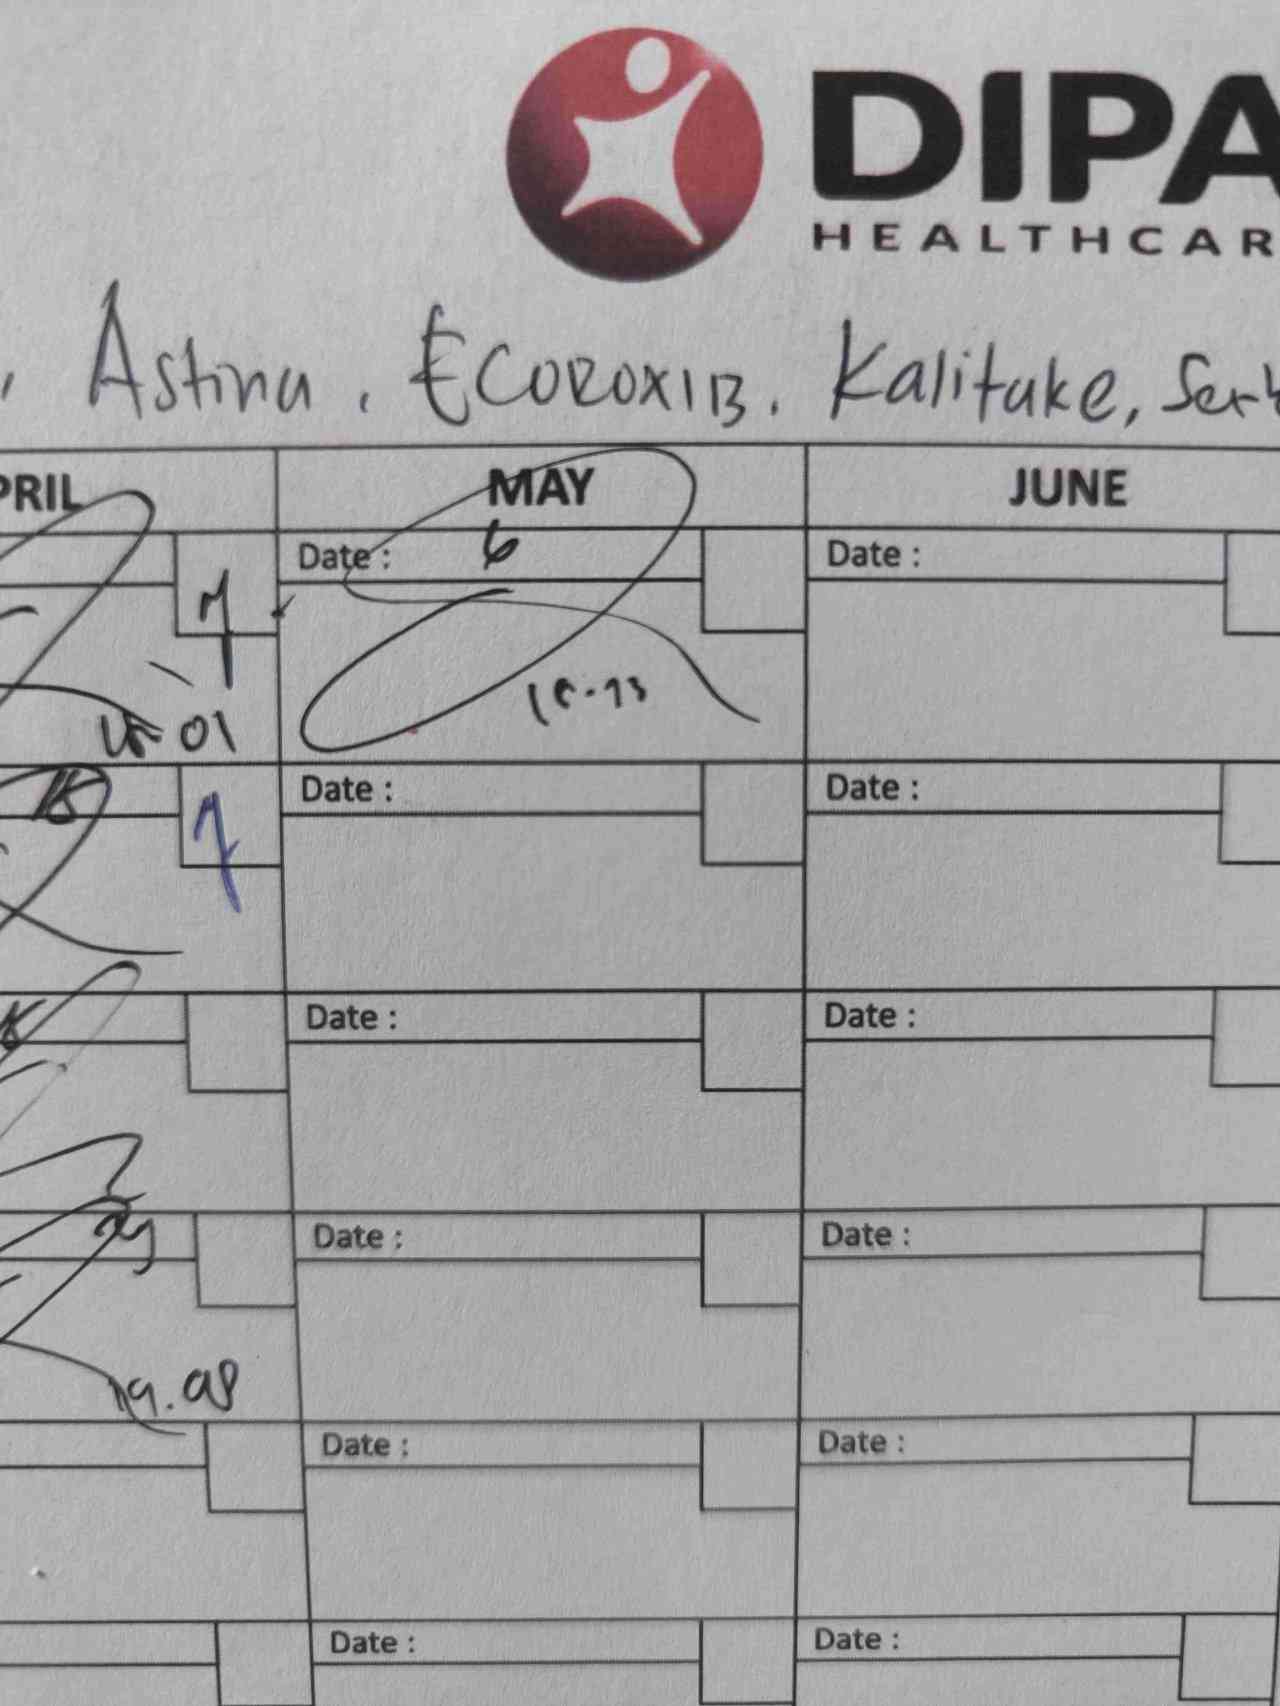 DIPA
HEALTHCAR
, Astina. ECOROXIB. Kalitake, Ser
PRIL MAY JUNE
Date : 6 Date :
15.01
18 Date : Date :
Date : Date :
29 Date : Date :
19.08
Date : Date :
Date : Date :